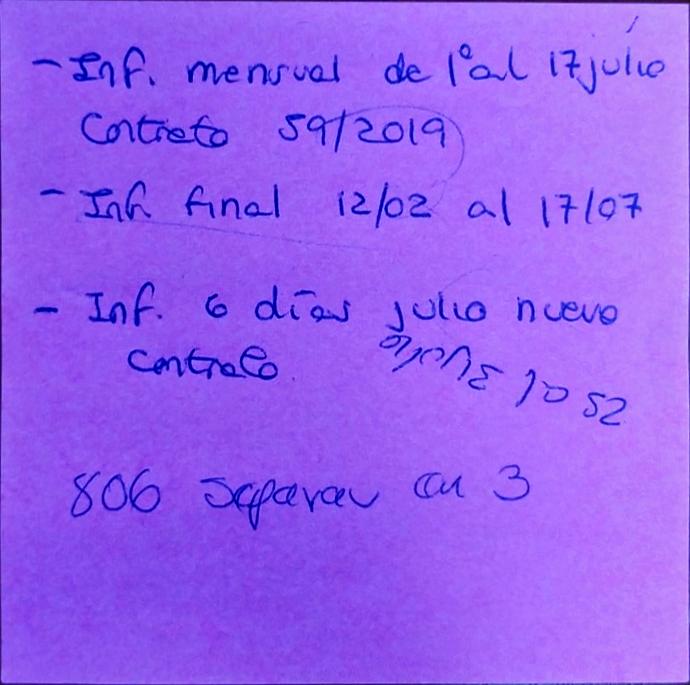 - Inf. mensual de 1º al 17 julio
Contrato 59/2019
- Inf. final 12/02 al 17/07
- Inf. 6 días julio nuevo
contrato. 25 al 31 julio
806 separar en 3